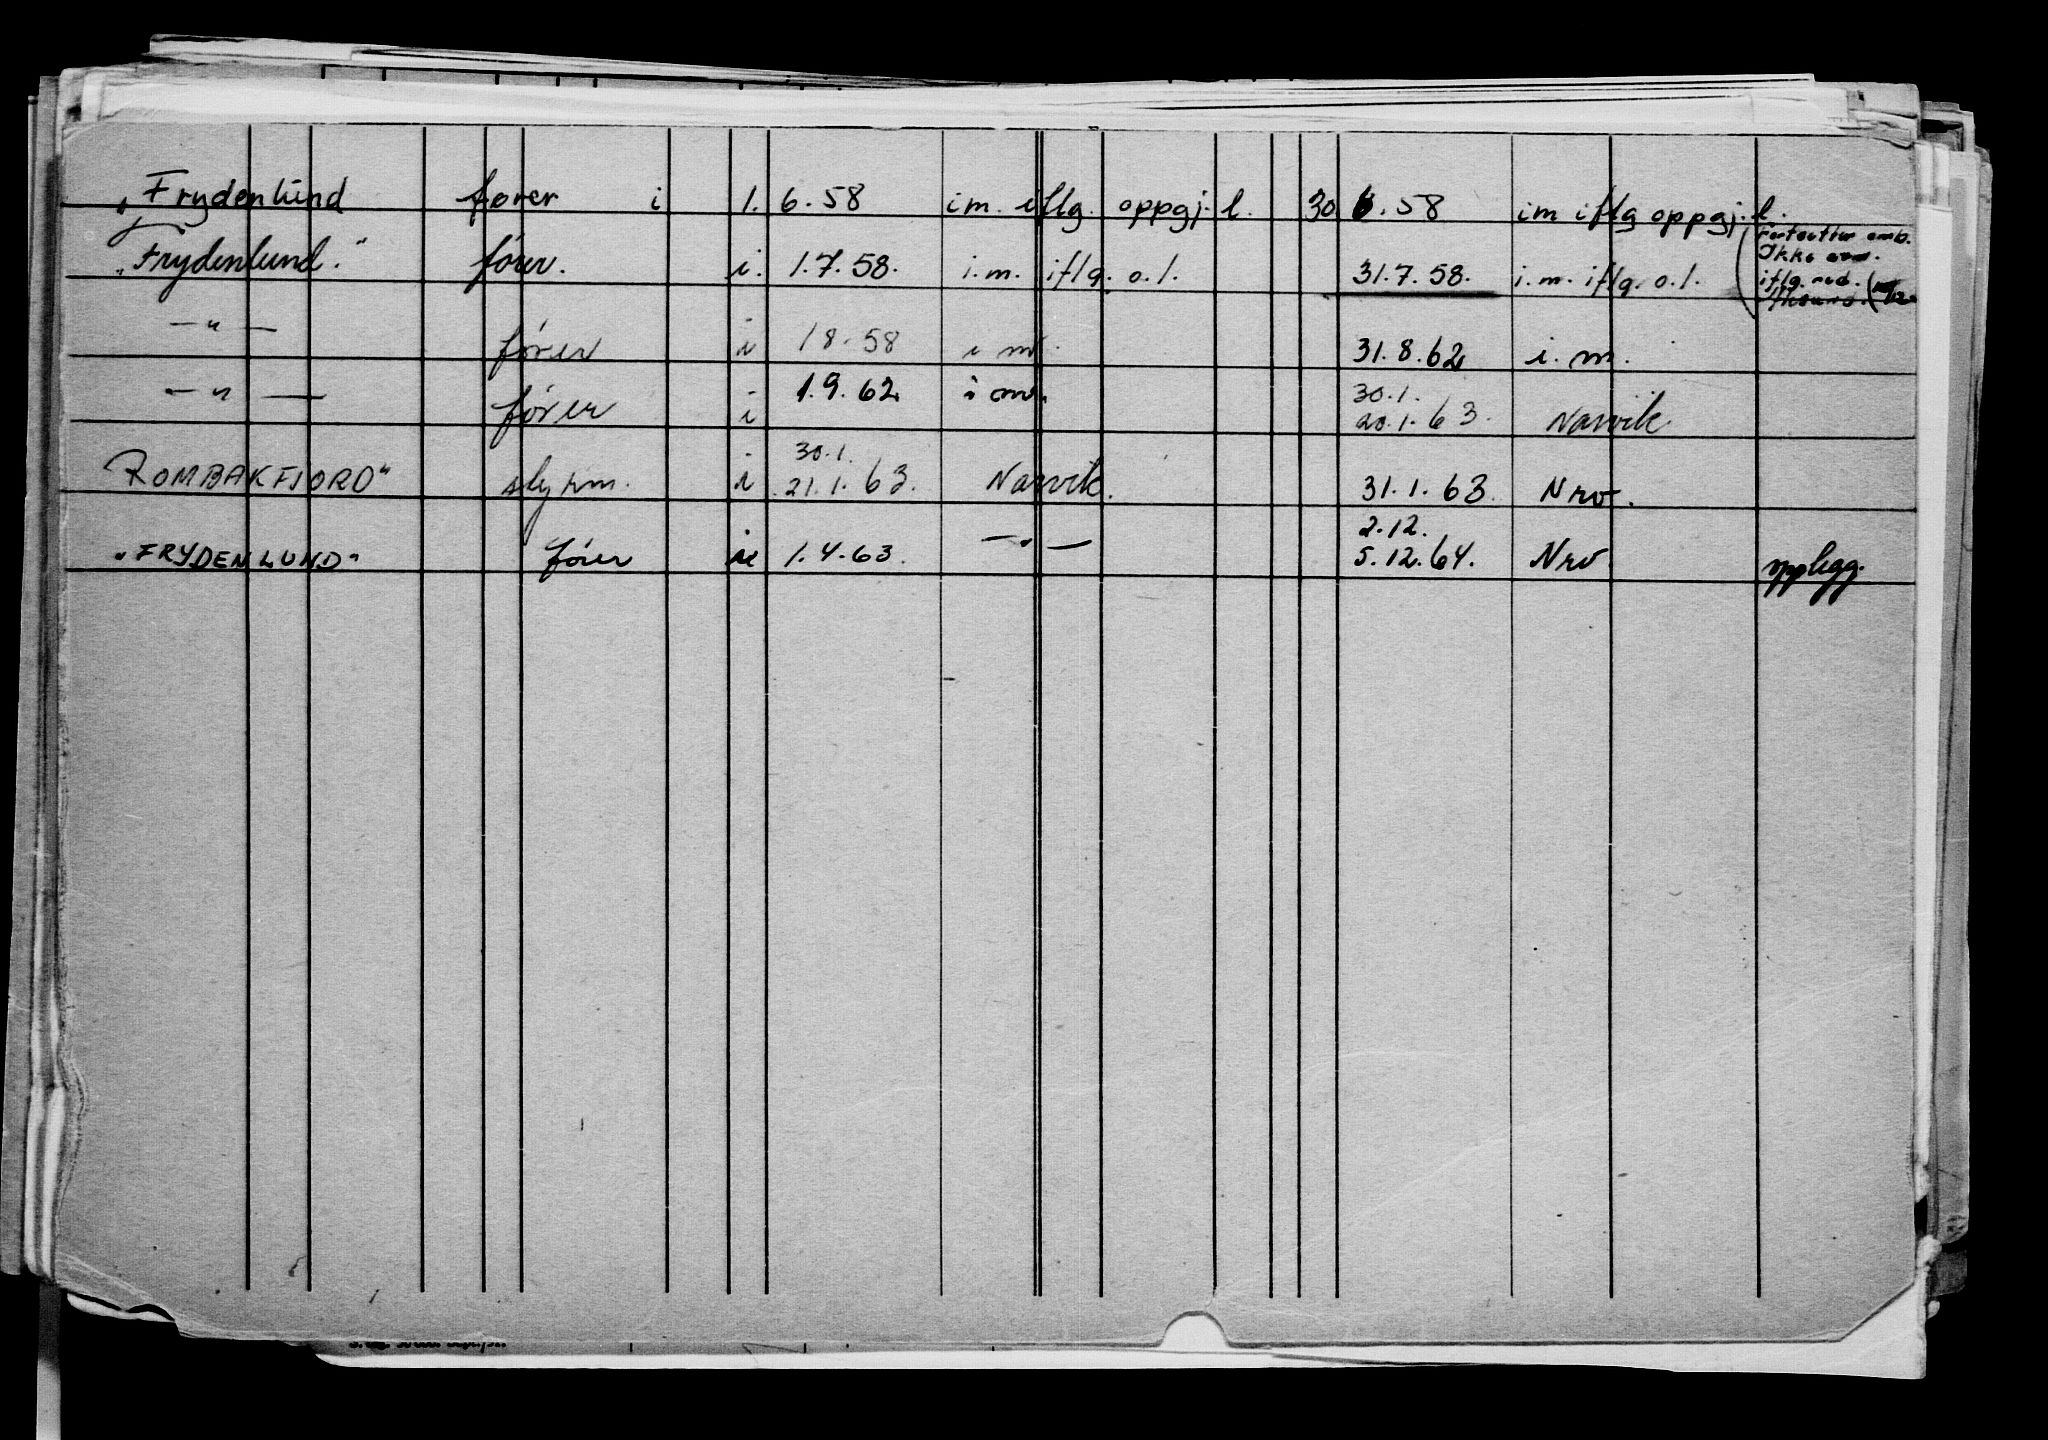 "Frydenlund fører i 1. 6.58 im. iflg. oppgj. l. 30 6.58 im iflg oppgj. l.
"Frydenlund." fører. i. 1.7.58. i.m. iflg. o.l. 31.7.58. i.m. iflg. o.l. (Fortsetter omb.
Ikke
iflg. red.
— " — fører i 1 8.58 i m. 31.8.62 i. m.
— " — fører i 1.9.62 i m. 30.1.
20.1.63. Narvik
30.1.
ROMBAKFJORD" styrm. i 21.1.63. Narvik. 31.1.63. Nrv.
2.12.
"FRYDENLUND" fører iu 1.4.63. — " — 5.12.64. Nrv. opplegg.